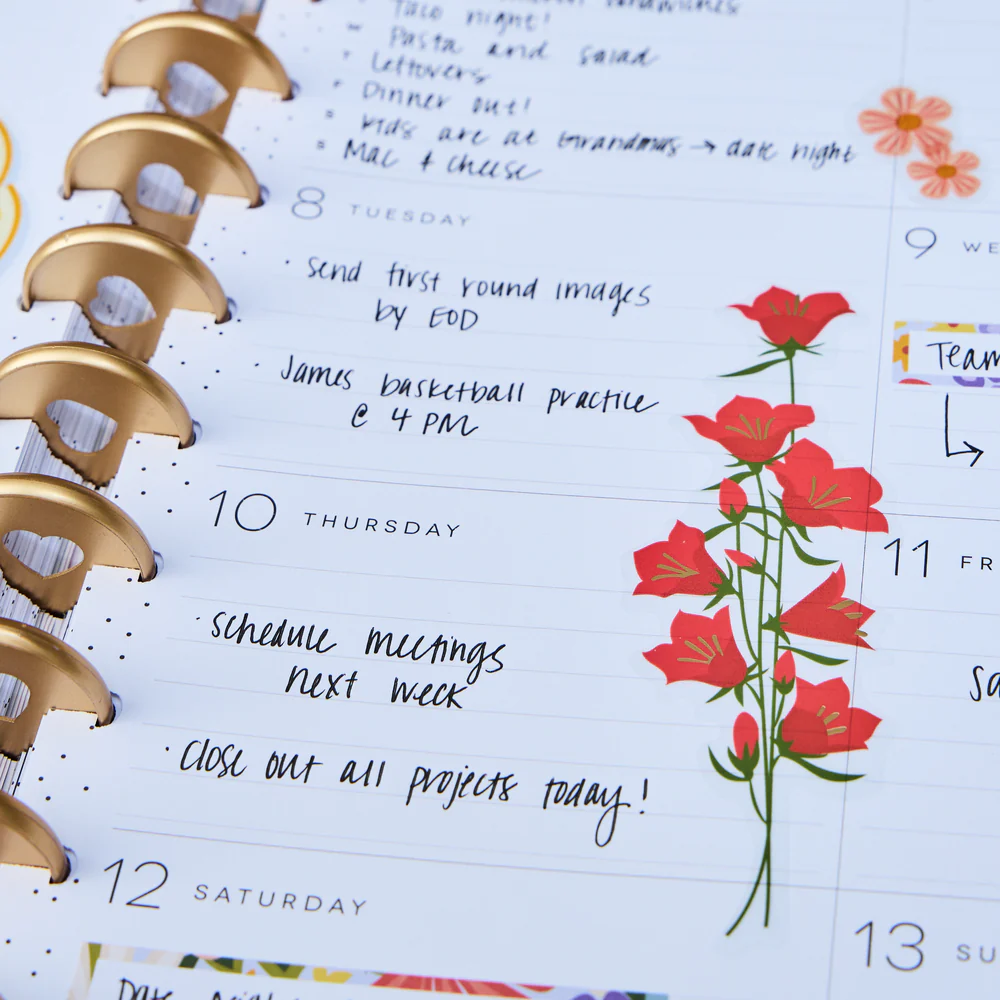 sandwiches
Taco night!
Pasta and salad
Leftovers
Dinner out!
kids are at Grandmas → date night
Mac + cheese
8 TUESDAY
· send first round images
by EOD
· James basketball practice
@ 4 PM
9 WE
Team
10 THURSDAY
· schedule meetings
next week
· close out all projects today!
11 FR
Sa
12 SATURDAY
Date night
13 SU